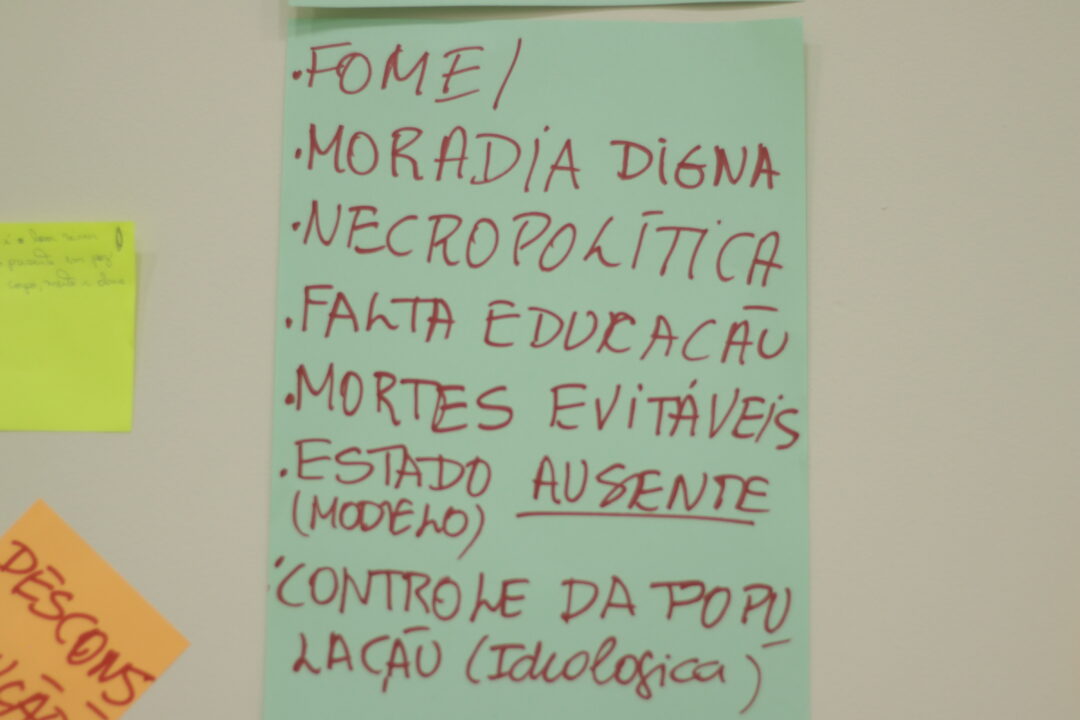 •FOME/
•MORADIA DIGNA
•NECROPOLÍTICA
•FALTA EDUCAÇÃO
•MORTES EVITÁVEIS
•ESTADO AUSENTE
(MODELO)
•CONTROLE DA POPU
LAÇÃO (Ideologica)
DESCONS